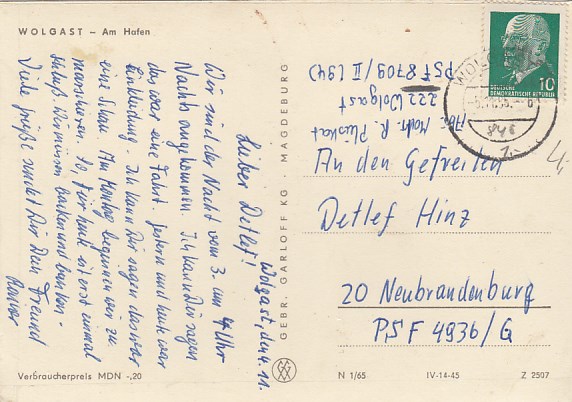 WOLGAST – Am Hafen
Wolgast, den 4. 11.
Lieber Detlef!
Wir sind des Nacht vom 3. am 4 Uhr
Nachts angekommen. Ich kann Dir sagen
das war eine Fahrt. Gestern und heute war
Einkleidung. Ich kann Dir sagen das war
eine Schau. Am Montag beginnen wir zu
marschieren. So, für heute ist erst einmal
Schluß. Wir müssen packen und
Viele Grüße sendet Dir Dein Freund
Verbraucherpreis MDN -,20
GEBR. GARLOFF KG · MAGDEBURG
DEUTSCHE
DEMOKRATISCHE REPUBLIK
10
WOLGAST
Abs. Matr. R.
222 Wolgast
PSF 8709/II (94)
846
1.-
4,-
An den Gefreiten
Detlef Hinz
20 Neubrandenburg
PSF 4936/G
N 1/65
IV-14-45
Z 2507